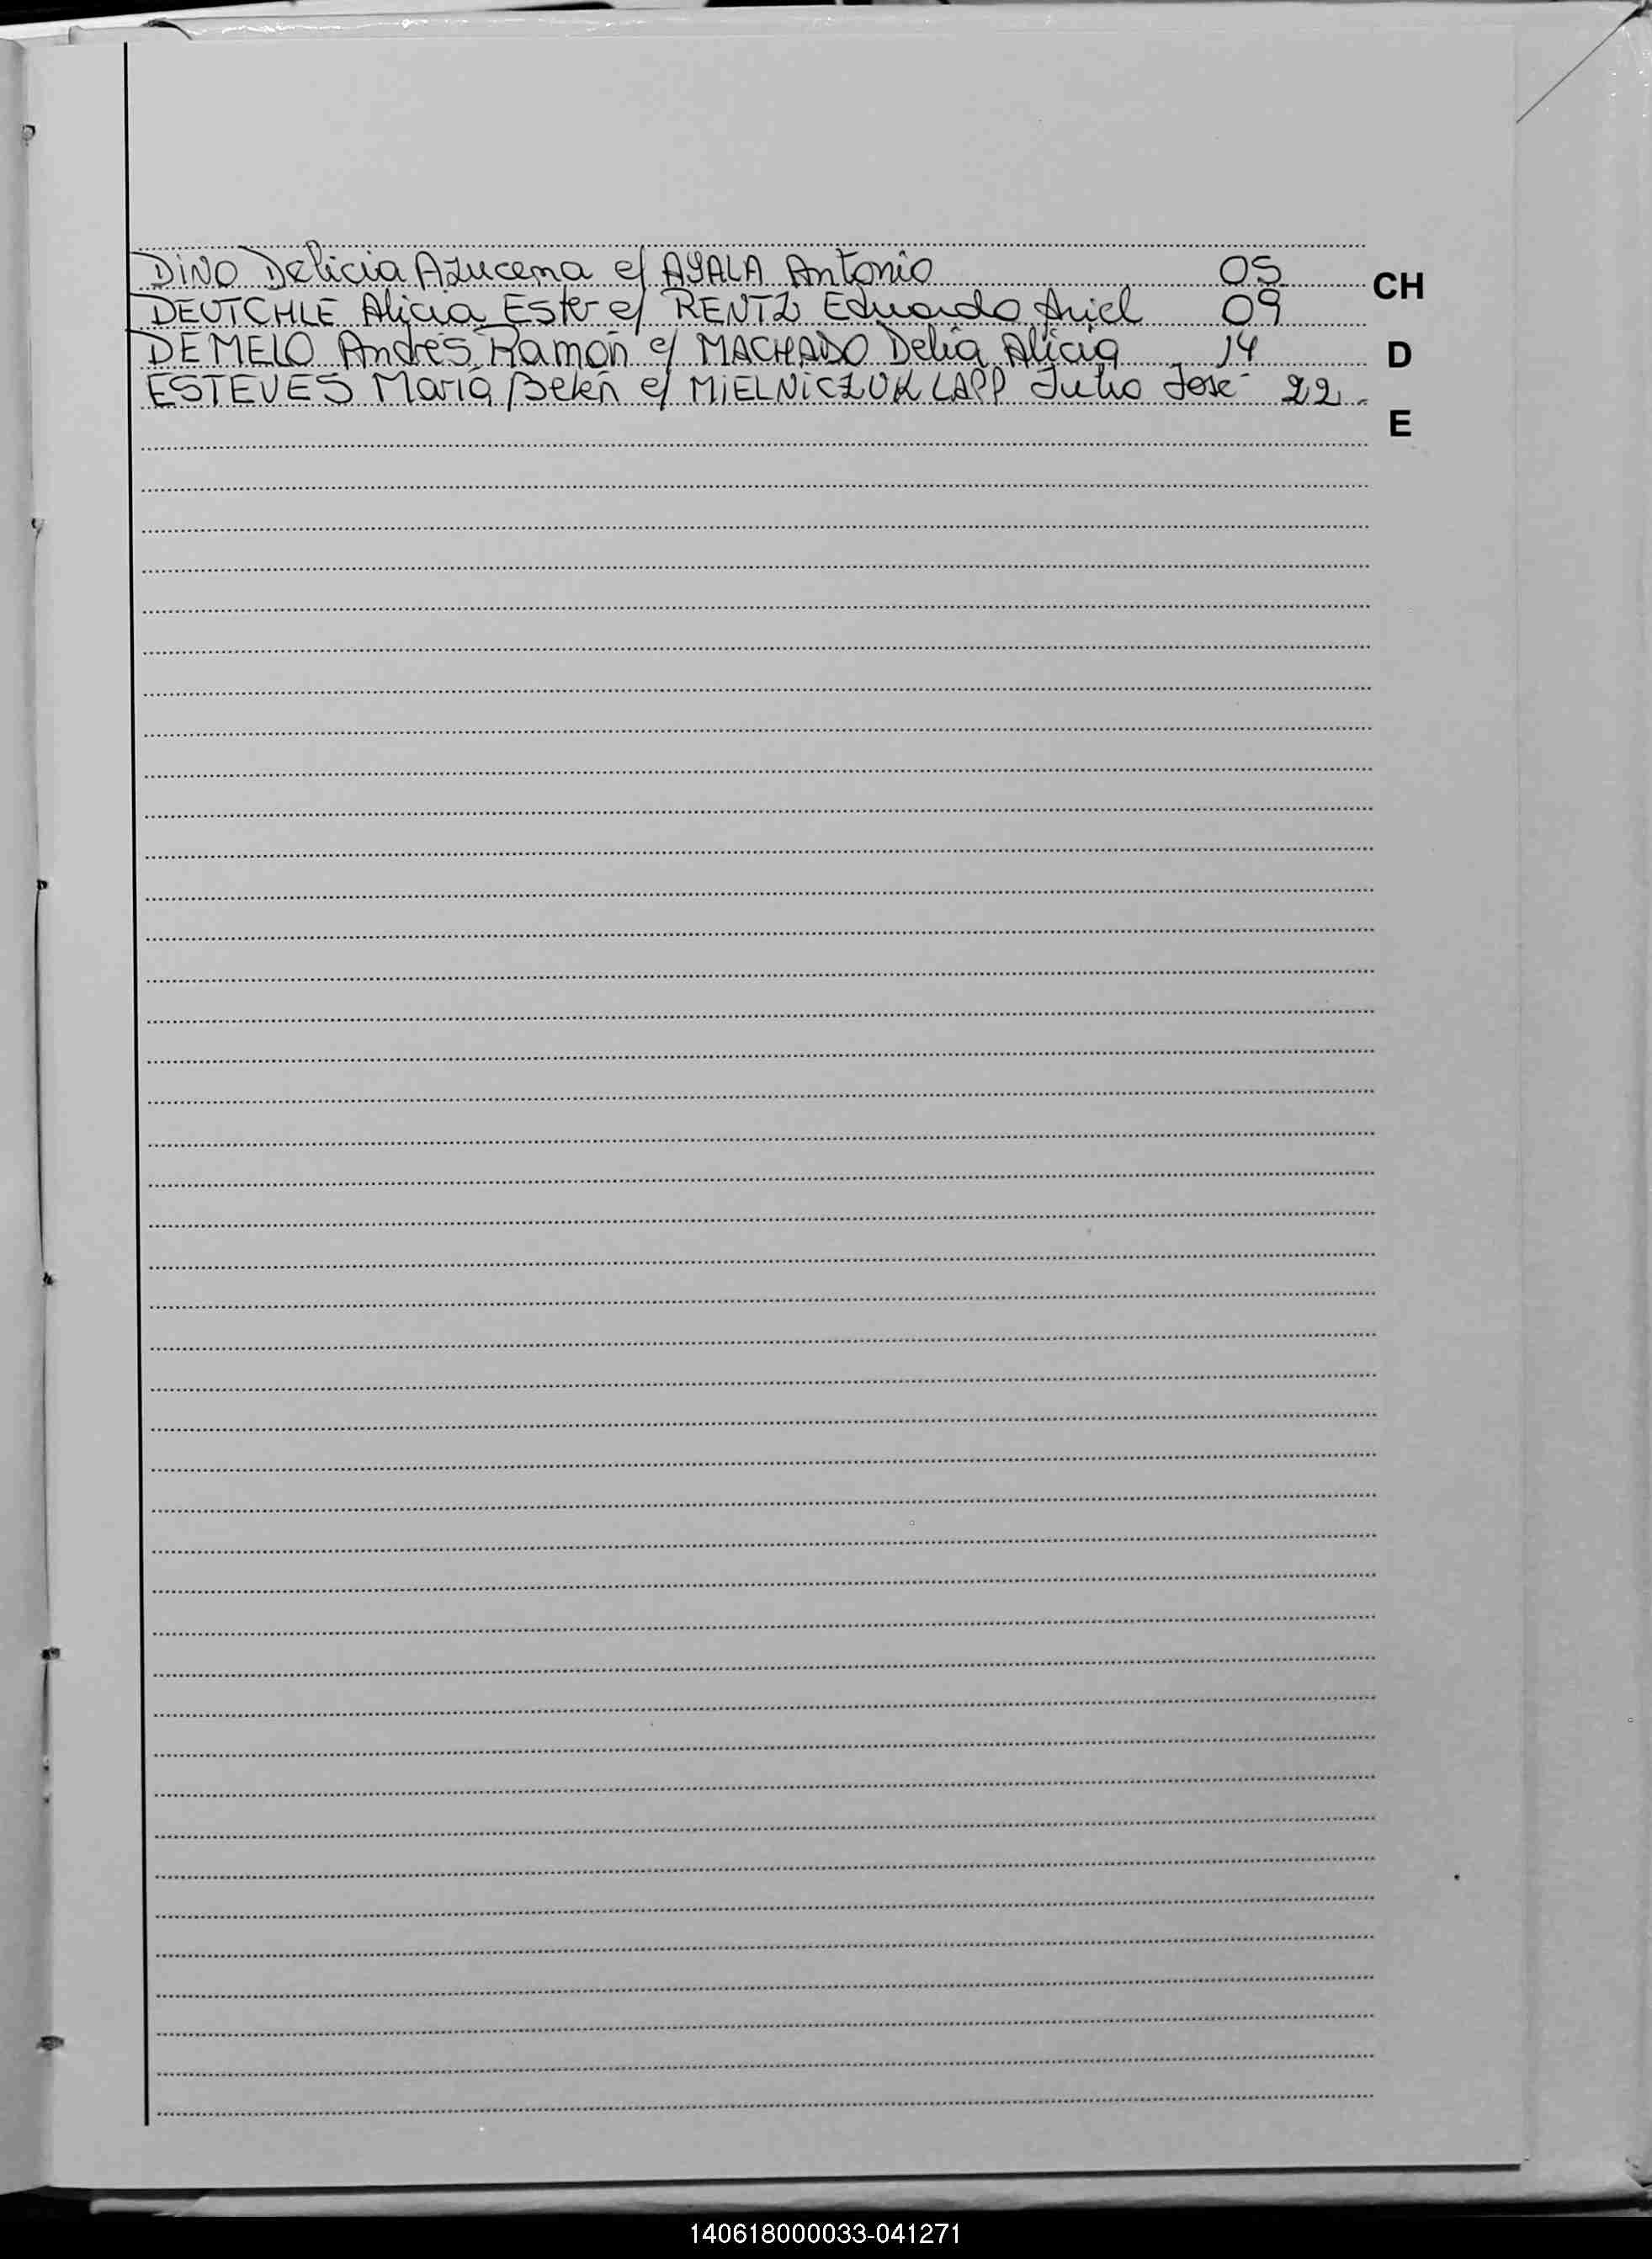 DINO Delicia Azucena c/ AYALA Antonio 05
CH
DEUTCHLE Alicia Ester c/ RENTZ Eduardo Ariel 09
DE MELO Andrés Ramón c/ MACHADO Delia Alicia 14
D
ESTEVES María Belén c/ MIELNICZUK LAPP Julio José 22
E
140618000033-041271